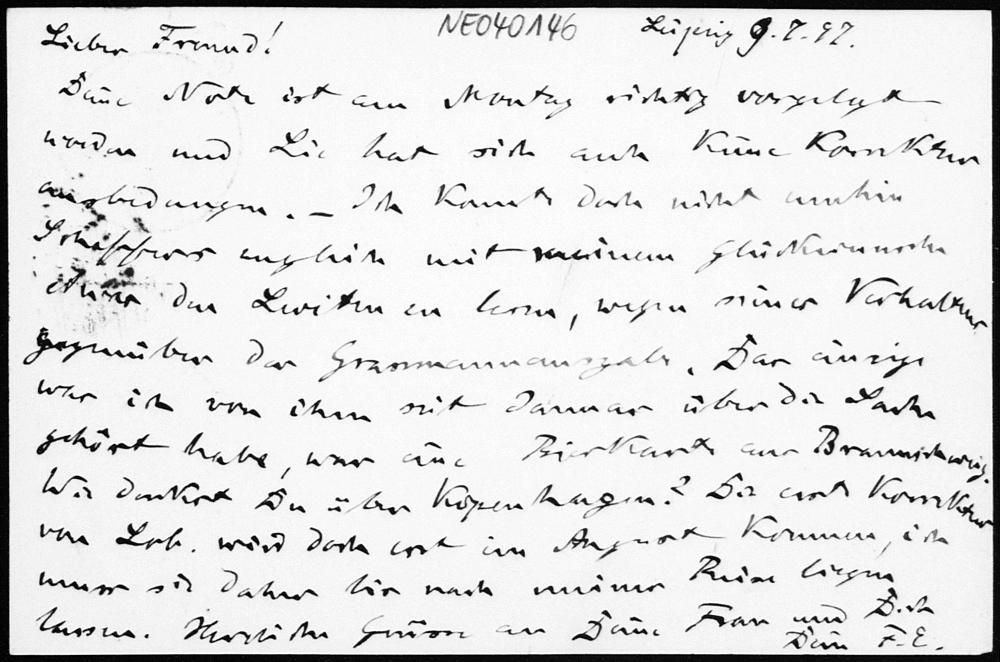 NE040146
Leipzig 9.7.97.
Lieber Freund!
Deine Note ist am Montag richtig vorgelegt
worden und Lie hat sich auch keine Korrektur
ausbedungen. – Ich konnte doch nicht umhin
Scheffers zugleich mit meinem Glückwunsche
etwas den Leviten zu lesen, wegen seines Verhaltens
gegenüber der Grassmannausgabe. Das einzige
was ich von ihm seit Januar über die Sache
gehört habe, war eine Bierkarte aus Braunschweig.
Wie denkst Du über Kopenhagen? Die erste Korrektur
von Lob. wird doch erst im August kommen, ich
muss sie daher bis nach meiner Reise liegen
lassen. Herzliche Grüsse an Deine Frau und Dich
Dein F. E.